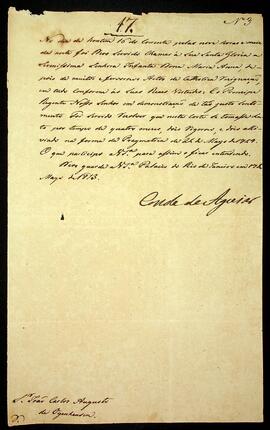 47.
Nº 3
No dia de hontem 16 do Corrente pelas nove horas e meia
da noite foi Deos Servido Chamar à Sua Santa Gloria a
Serenissima Senhora Infanta Dona Maria Anna de
pois de muitos e fervorosos Actos de Catholica Resignação,
em tudo conforme às Suas Reaes Virtudes. E o Principe
Regente Nosso Senhor em demonstração de tão justo senti-
mento Foi Servido Resolver que nesta Corte se tomasse lu-
to por tempo de quatro mezes, dois rigoroso, e dois alli-
viado na forma da Pragmatica de 24 de Mayo de
O que participo a V. S.ª para assim o ficar entendendo.
Deos guarde a V. S.ª Palacio do Rio de Janeiro em 17 de
Mayo de 1813.
Conde de Aguiar
S.r João Carlos Augusto
de Oyenhausen